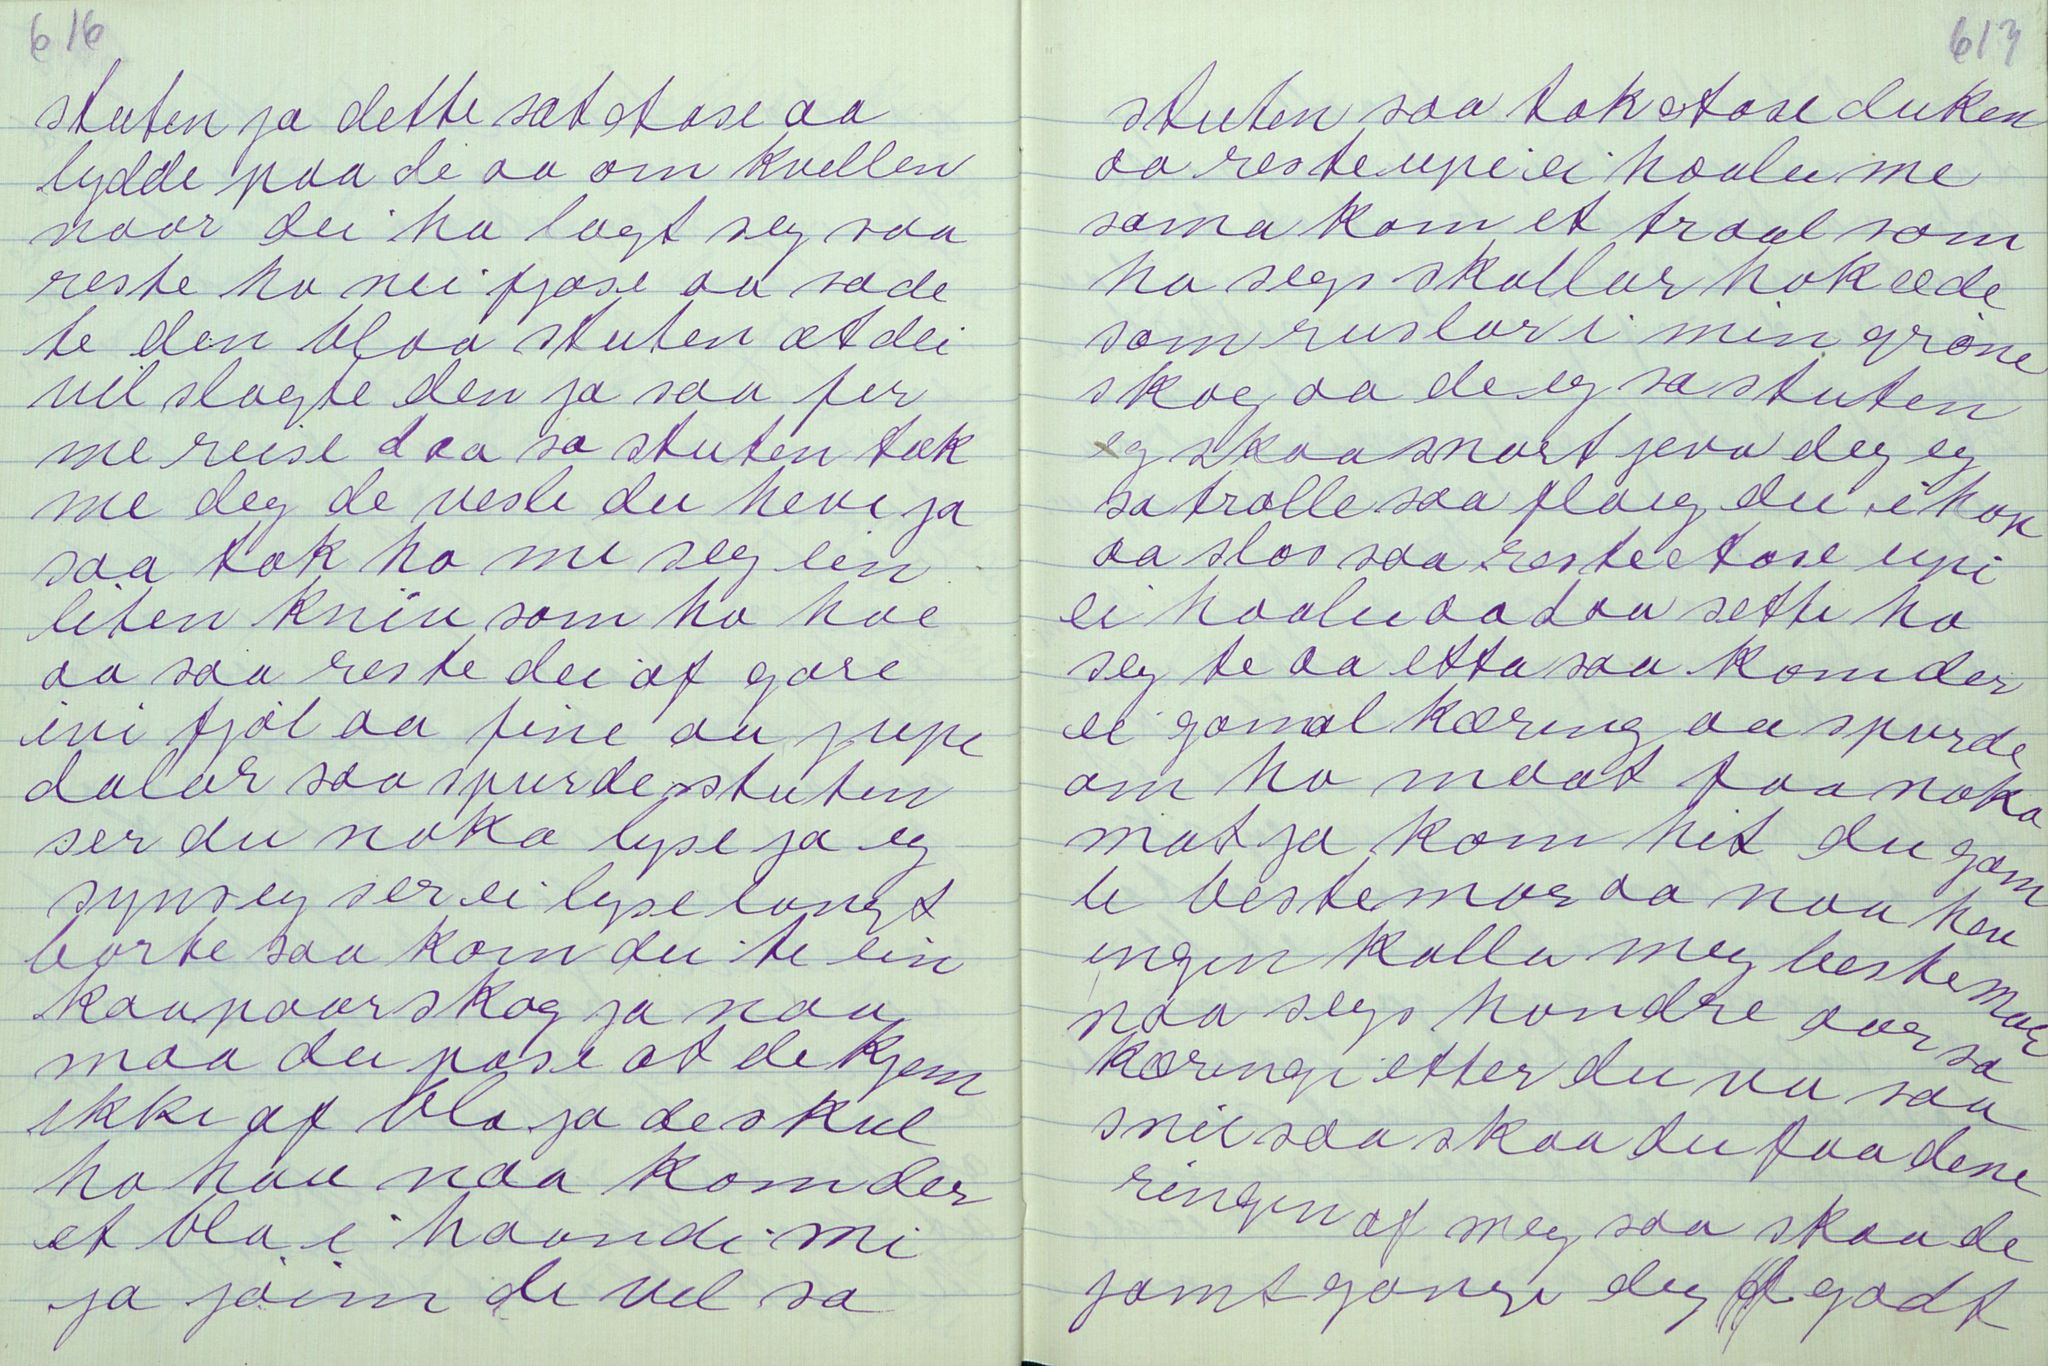 616
stuten ja dette sat stase aa
lydde paa de aa om kvellen
naar dei ha lagt seg saa
reste ho nei i fjose aa sade
te den blaa stuten at dei
vil slagte den ja saa fer
me reise daa sa stuten tak
me deg de vesle du heve ja
saa tok ho me seg ein
liten kniv som ho hae
aa saa reste dei af gare
ivi fjöl aa fine aa jupe
dalar saa spurde stuten
ser du noka lyse ja eg
syns eg ser ei lyse langt
borte saa kom dei te ein
kaapaarskog ja naa
maa du pase at de kjem
ikke af bla ja de skul
ho hau naa kom der
et bla i haandi mi
ja jöim de vel sa
617
stuten saa tok stase duken
aa reste upi ei haalu me
sama kom et traal som
ha segs skallar hok æ de
som ruslar i min gröne
skog aa de eg sa stuten
eg skaa snart jeva deg eg
sa trolle saa flaug dei ihop
aa slos saa reste stase upi
ei haalu aa daa sette ho
seg te aa etta saa kom der
ei gamal kæring aa spurde
om ho maat faa noka
mat ja kom hit du gam
le bestemor aa naa hev
ingen kalla meg bestemor
paa segs hondre aar sa
kæringi etter du va saa
snil saa skaa du faa dene
ringen af meg saa skaa de
jamt gange deg godt